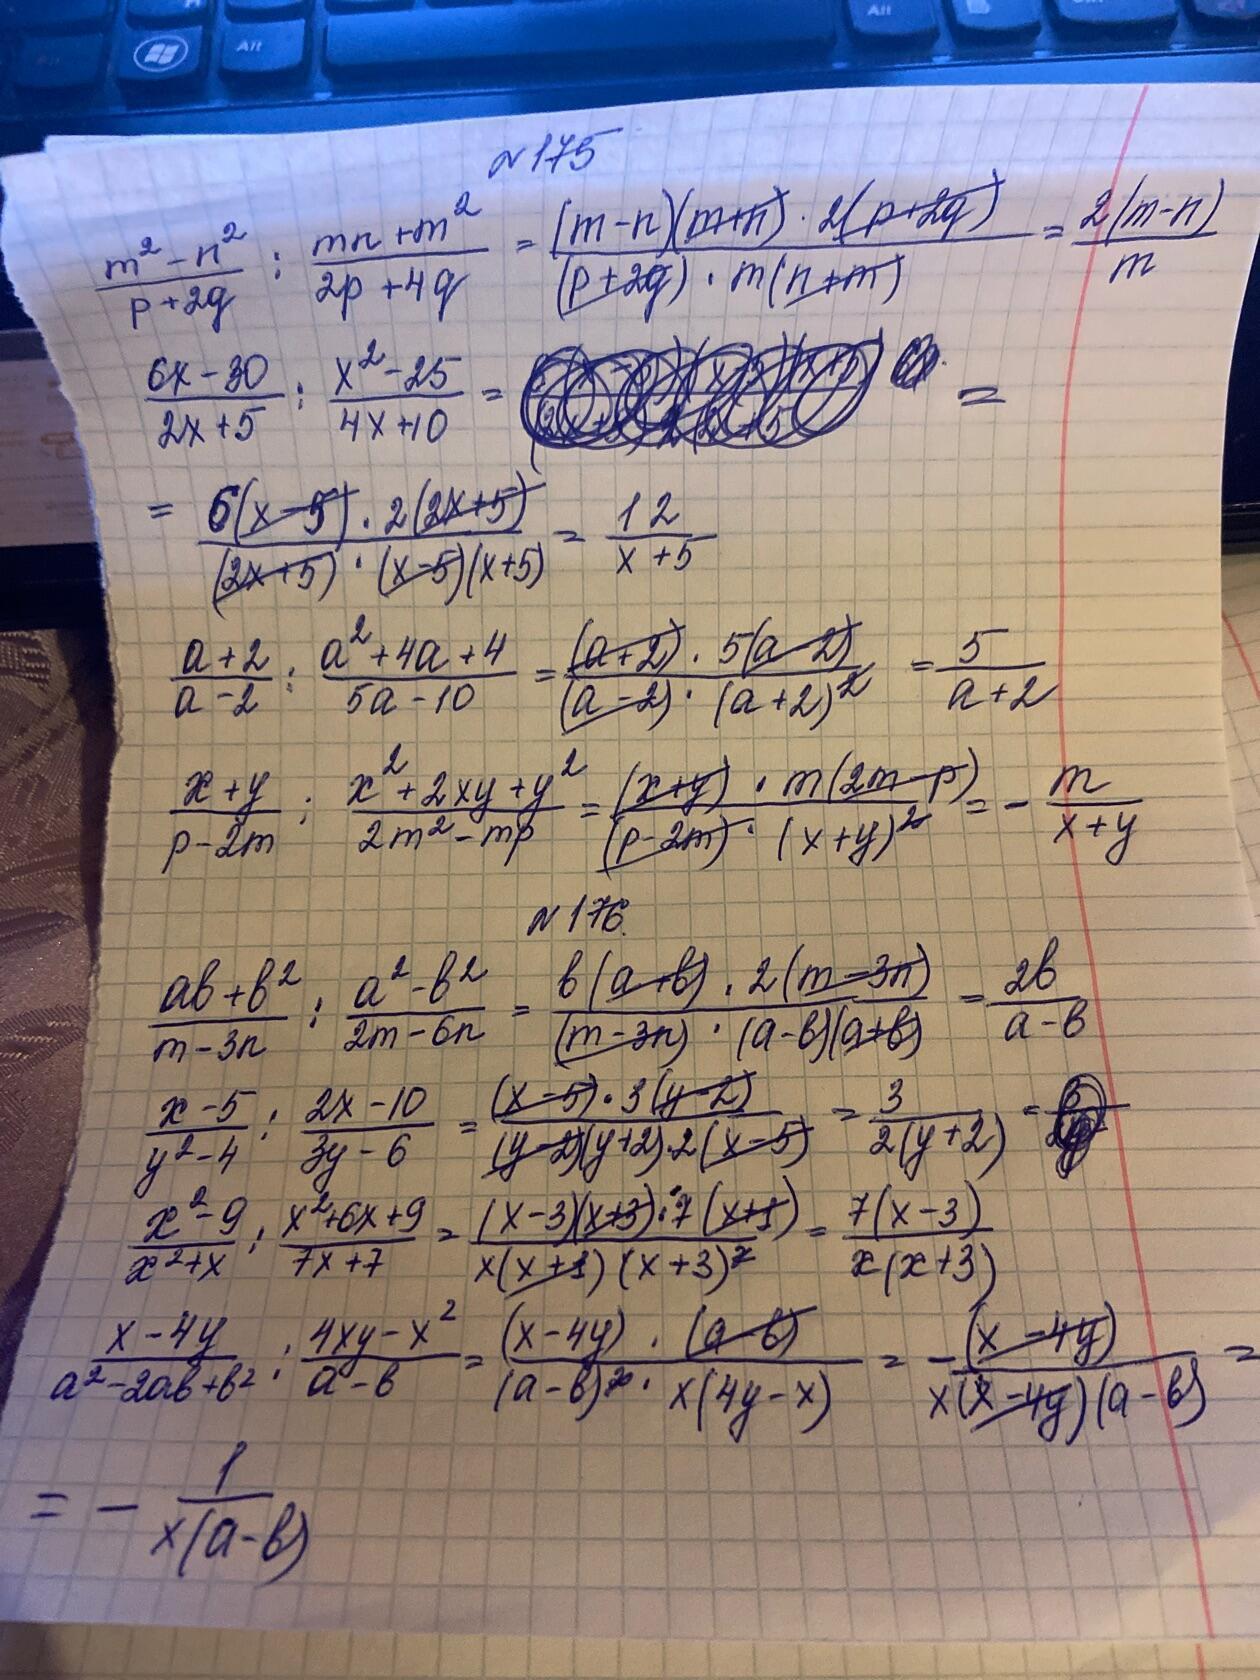 Alt
Alt
№175
(m²-n²)/(p+2q) : (mn+m²)/(2p+4q) = ((m-n)(m+n)·2(p+2q))/((p+2q)·m(n+m)) = 2(m-n)/m
(6x-30)/(2x+5) : (x²-25)/(4x+10) = =
= (6(x-5)·2(2x+5))/((2x+5)·(x-5)(x+5)) = 12/(x+5)
(a+2)/(a-2) : (a²+4a+4)/(5a-10) = ((a+2)·5(a-2))/((a-2)·(a+2)²) = 5/(a+2)
(x+y)/(p-2m) : (x²+2xy+y²)/(2m²-mp) = ((x+y)·m(2m-p))/((p-2m)·(x+y)²) = - m/(x+y)
№176.
(ab+b²)/(m-3n) : (a²-b²)/(2m-6n) = (b(a+b)·2(m-3n))/((m-3n)·(a-b)(a+b)) = 2b/(a-b)
(x-5)/(y²-4) : (2x-10)/(3y-6) = ((x-5)·3(y-2))/((y-2)(y+2)·2(x-5)) = 3/(2(y+2)) =
(x²-9)/(x²+x) : (x²+6x+9)/(7x+7) = ((x-3)(x+3)·7(x+1))/(x(x+1)(x+3)²) = 7(x-3)/(x(x+3))
(x-4y)/(a²-2ab+b²) : (4xy-x²)/(a-b) = ((x-4y)·(a-b))/((a-b)²·x(4y-x)) = - (x-4y)/(x(x-4y)(a-b)) =
= - 1/(x(a-b))